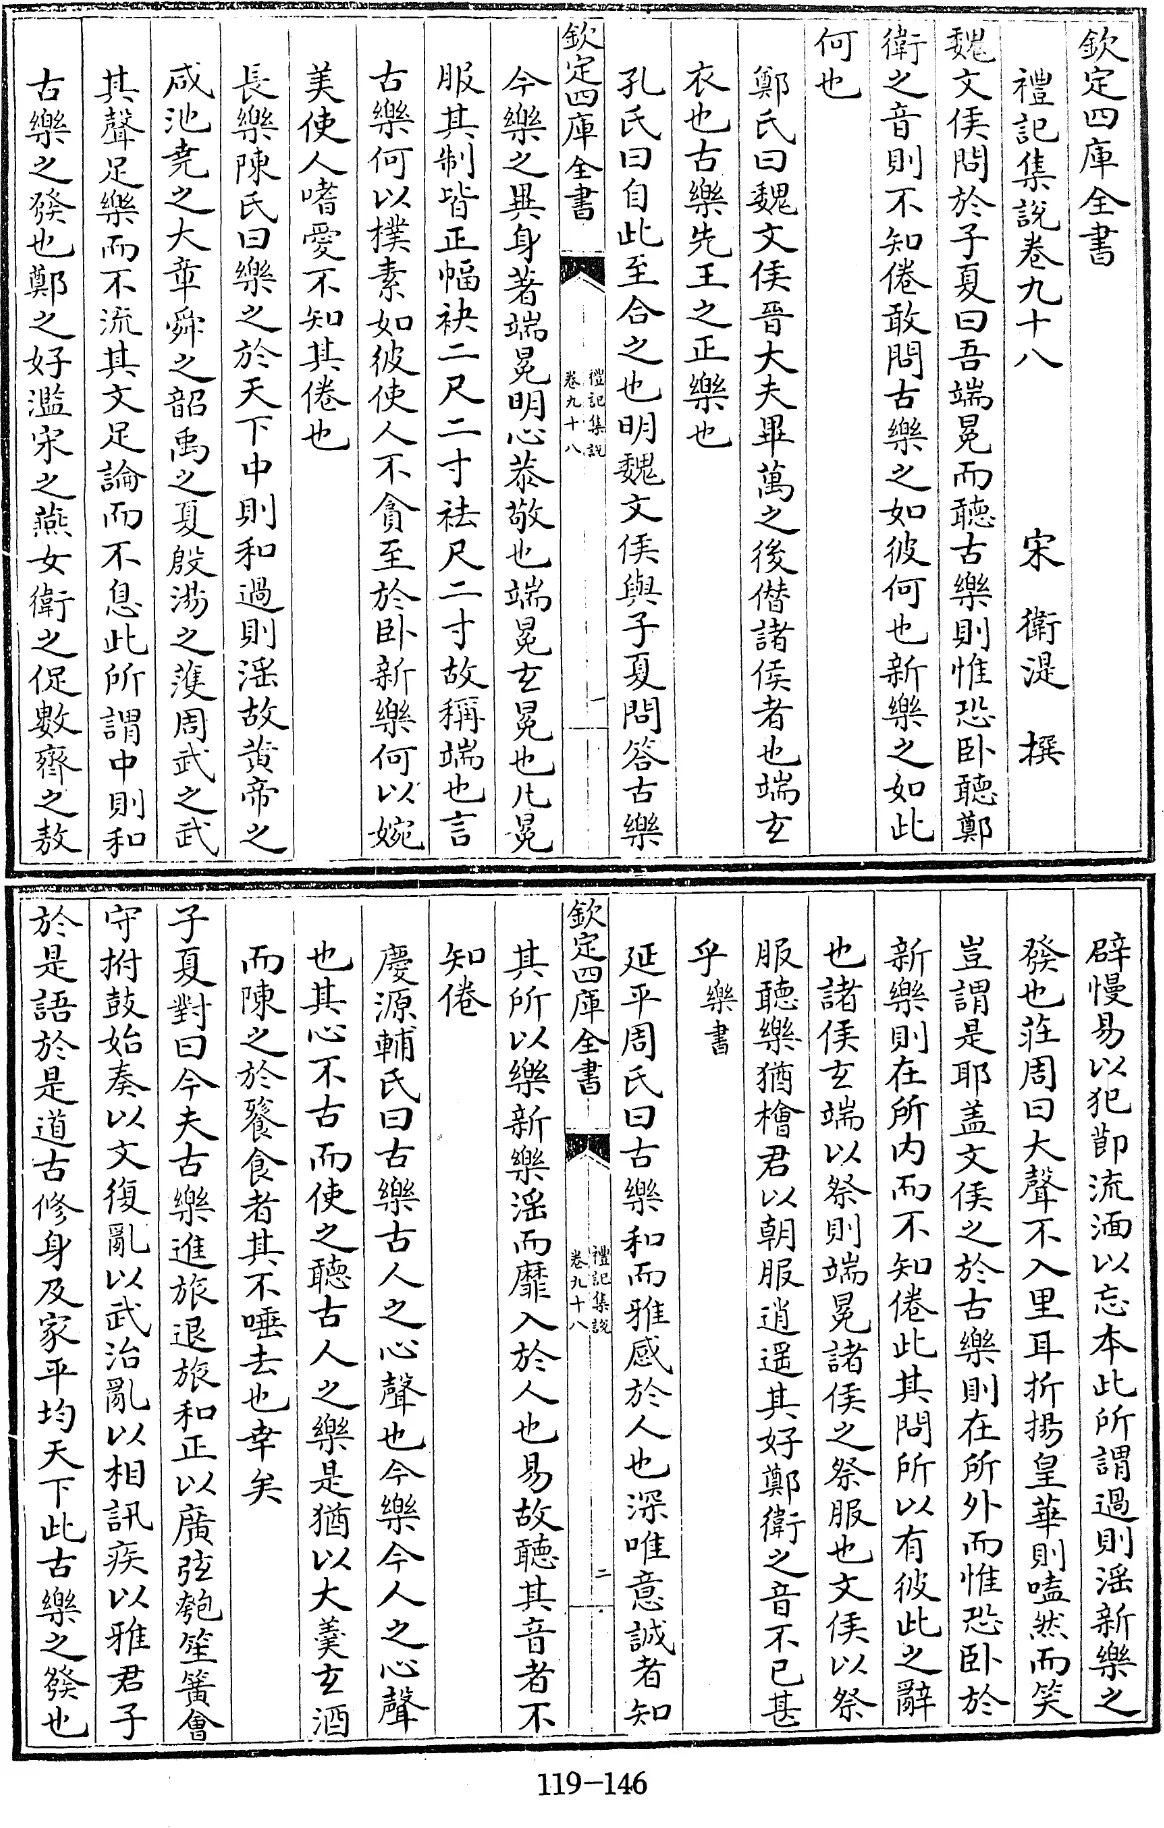 欽定四庫全書
禮記集說卷九十八
宋 衛湜 撰
魏文侯問於子夏曰吾端冕而聽古樂則惟恐卧聽鄭
衛之音則不知倦敢問古樂之如彼何也新樂之如此
何也
鄭氏曰魏文侯晉大夫畢萬之後僭諸侯者也端玄
衣也古樂先王之正樂也
孔氏曰自此至合之也明魏文侯與子夏問答古樂
欽定四庫全書
禮記集說
卷九十八
一
今樂之異身著端冕明心恭敬也端冕玄冕也凡冕
服其制皆正幅袂二尺二寸袪尺二寸故稱端也言
古樂何以樸素如彼使人不貪至於卧新樂何以婉
美使人嗜愛不知其倦也
長樂陳氏曰樂之於天下中則和過則淫故黄帝之
咸池堯之大章舜之韶禹之夏殷湯之濩周武之武
其聲足樂而不流其文足論而不息此所謂中則和
古樂之發也鄭之好濫宋之燕女衛之促數齊之敖
辟慢易以犯節流湎以忘本此所謂過則淫新樂之
發也莊周曰大聲不入里耳折揚皇華則嗑然而笑
豈謂是耶盖文侯之於古樂則在所外而惟恐卧於
新樂則在所内而不知倦此其問所以有彼此之辭
也諸侯玄端以祭則端冕諸侯之祭服也文侯以祭
服聽樂猶檜君以朝服逍遥其好鄭衛之音不已甚
乎樂書
延平周氏曰古樂和而雅感於人也深唯意誠者知
欽定四庫全書
禮記集說
卷九十八
二
其所以樂新樂淫而靡入於人也易故聽其音者不
知倦
慶源輔氏曰古樂古人之心聲也今樂今人之心聲
也其心不古而使之聽古人之樂是猶以大羹玄酒
而陳之於飱食者其不唾去也幸矣
子夏對曰今夫古樂進旅退旅和正以廣弦匏笙簧會
守拊鼓始奏以文復亂以武治亂以相訊疾以雅君子
於是語於是道古修身及家平均天下此古樂之發也
119-146